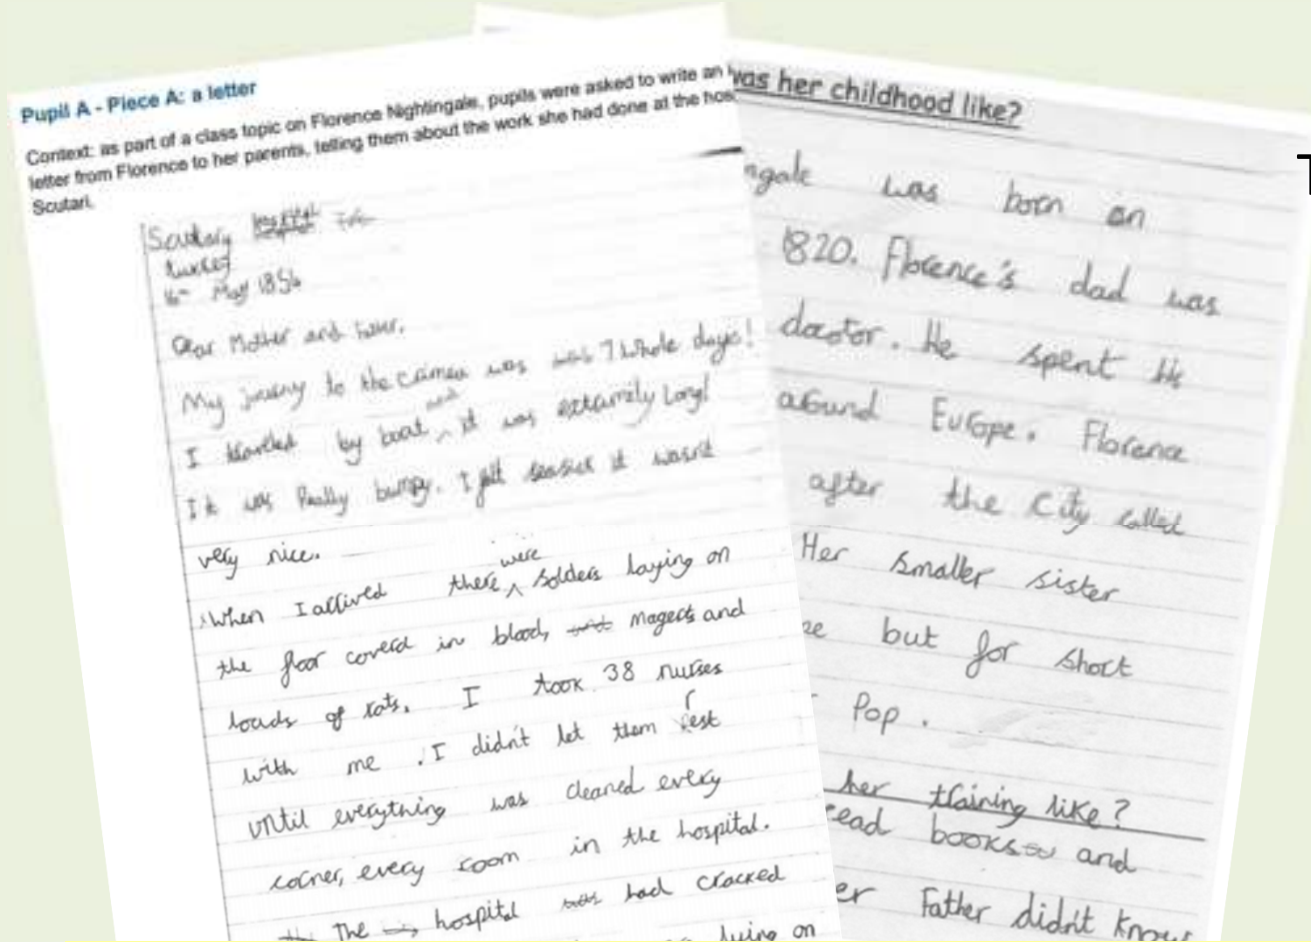 Pupil A - Piece A: a letter
Context: as part of a class topic on Florence Nightingale, pupils were asked to write an
letter from Florence to her parents, telling them about the work she had done at the hos
Scutari.
Scutary hospital
May 1856
Dear Mother and
My to the crimea was was 7 whole days!
I by boat and it was Long!
It was Really bumpy. I felt seasick it wasn't
very nice.
When I arrived there were solders laying on
the floor coverd in blood, magets and
loads of rats. I took 38 nurses
with me . I didn't let them rest
until everything was cleaned every
corner, every room in the hospital.
The hospital had cracked
lying on
was her childhood like?
ngale was born on
1820. Florence's dad was
doctor. He spent his
around Europe. Florence
after the City called
Her smaller sister
but for short
Pop.
her training like?
read books and
er Father didn't know
T